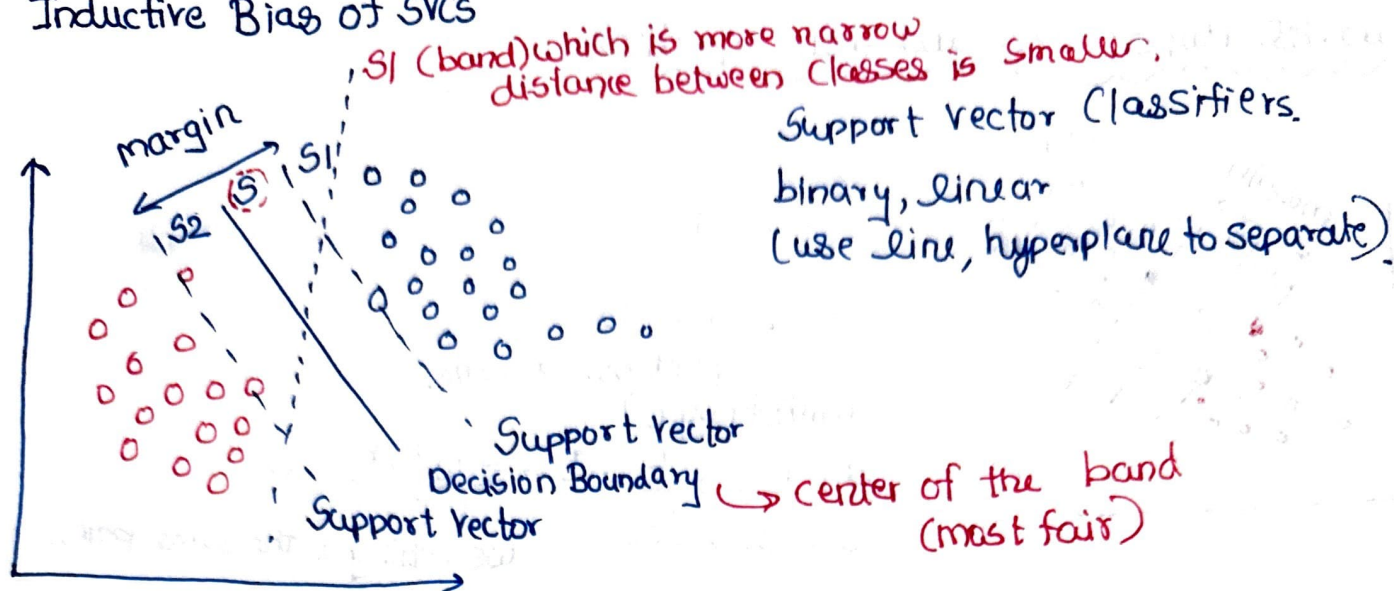 Inductive Bias of SVCs
S1 (band) which is more narrow
distance between Classes is smaller.
margin
Support vector Classifiers.
S1
S
S2
binary, linear
(use line, hyperplane to separate).
Support vector
Decision Boundary
center of the band
(most fair)
Support vector